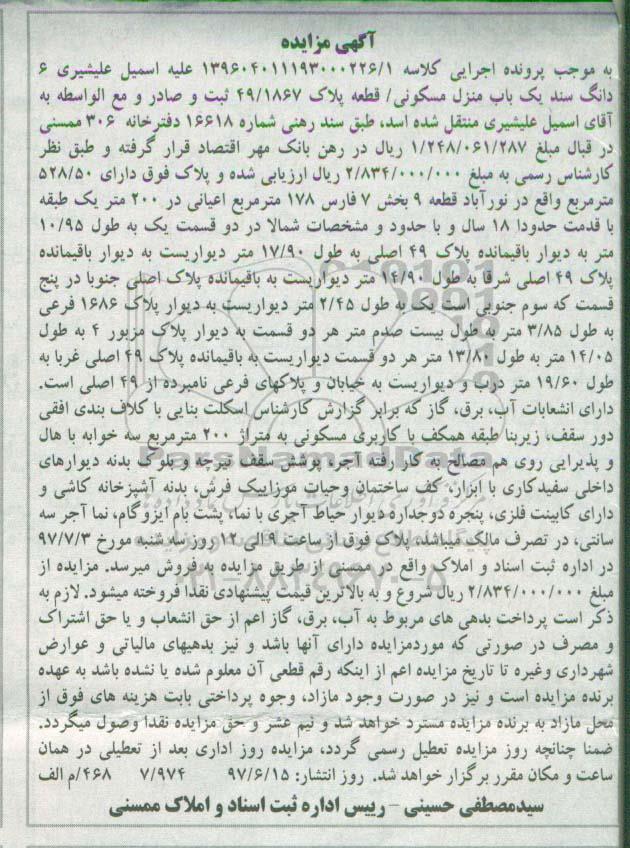 آگهی مزایده
به موجب پرونده اجرایی کلاسه ۱۳۹۶۰۴۰۱۱۱۹۳۰۰۰۲۲۶/۱ علیه اسمیل علیشیری ۶
دانگ سند یک باب منزل مسکونی/ قطعه پلاک ۴۹/۱۸۶۷ ثبت و صادر و مع الواسطه به
آقای اسمیل علیشیری منتقل شده اسد، طبق سند رهنی شماره ۱۶۶۱۸ دفترخانه ۳۰۶ ممسنی
در قبال مبلغ ۱/۲۴۸/۰۶۱/۲۸۷ ریال در رهن بانک مهر اقتصاد قرار گرفته و طبق نظر
کارشناس رسمی به مبلغ ۲/۸۳۴/۰۰۰/۰۰۰ ریال ارزیابی شده و پلاک فوق دارای ۵۲۸/۵۰
مترمربع واقع در نورآباد قطعه ۹ بخش ۷ فارس ۱۷۸ مترمربع اعیانی در ۲۰۰ متر یک طبقه
با قدمت حدودا ۱۸ سال و با حدود و مشخصات شمالا در دو قسمت یک به طول ۱۰/۹۵
متر به دیوار باقیمانده پلاک ۴۹ اصلی به طول ۱۷/۹۰ متر دیواریست به دیوار باقیمانده
پلاک ۴۹ اصلی شرقا به طول ۱۴/۹۰ متر دیواریست به باقیمانده پلاک اصلی جنوبا در پنج
قسمت که سوم جنوبی است یک به طول ۲/۴۵ متر دیواریست به دیوار پلاک ۱۶۸۶ فرعی
به طول ۳/۸۵ متر به طول بیست صدم متر هر دو قسمت به دیوار پلاک مزبور ۴ به طول
۱۴/۰۵ متر به طول ۱۳/۸۰ متر هر دو قسمت دیواریست به باقیمانده پلاک ۴۹ اصلی غربا به
طول ۱۹/۶۰ متر درب و دیواریست به خیابان و پلاکهای فرعی نامبرده از ۴۹ اصلی است.
دارای انشعابات آب، برق، گاز که برابر گزارش کارشناس اسکلت بنایی با کلاف بندی افقی
دور سقف، زیربنا طبقه همکف با کاربری مسکونی به متراژ ۲۰۰ مترمربع سه خوابه با هال
و پذیرایی روی هم مصالح به کار رفته آجر، پوشش سقف تیرچه و بلوک بدنه دیوارهای
داخلی سفیدکاری با ابزار، کف ساختمان وحیات موزاییک فرش، بدنه آشپزخانه کاشی و
دارای کابینت فلزی، پنجره دوجداره دیوار حیاط آجری با نما، پشت بام ایزوگام، نما آجر سه
سانتی، در تصرف مالک میباشد. پلاک فوق از ساعت ۹ الی ۱۲ روز سه شنبه مورخ ۹۷/۷/۳
در اداره ثبت اسناد و املاک واقع در ممسنی از طریق مزایده به فروش میرسد. مزایده از
مبلغ ۲/۸۳۴/۰۰۰/۰۰۰ ریال شروع و به بالاترین قیمت پیشنهادی نقدا فروخته میشود. لازم به
ذکر است پرداخت بدهی های مربوط به آب، برق، گاز اعم از حق انشعاب و یا حق اشتراک
و مصرف در صورتی که موردمزایده دارای آنها باشد و نیز بدهیهای مالیاتی و عوارض
شهرداری وغیره تا تاریخ مزایده اعم از اینکه رقم قطعی آن معلوم شده یا نشده باشد به عهده
برنده مزایده است و نیز در صورت وجود مازاد، وجوه پرداختی بابت هزینه های فوق از
محل مازاد به برنده مزایده مسترد خواهد شد و نیم عشر و حق مزایده نقدا وصول میگردد.
ضمنا چنانچه روز مزایده تعطیل رسمی گردد، مزایده روز اداری بعد از تعطیلی در همان
ساعت و مکان مقرر برگزار خواهد شد. روز انتشار: ۹۷/۶/۱۵ ۷/۹۷۴ ۴۶۸/م الف
سیدمصطفی حسینی - رییس اداره ثبت اسناد و املاک ممسنی
ParsNamadData
۰۲۱-۸۸۳۴۹۶۷۰-۵